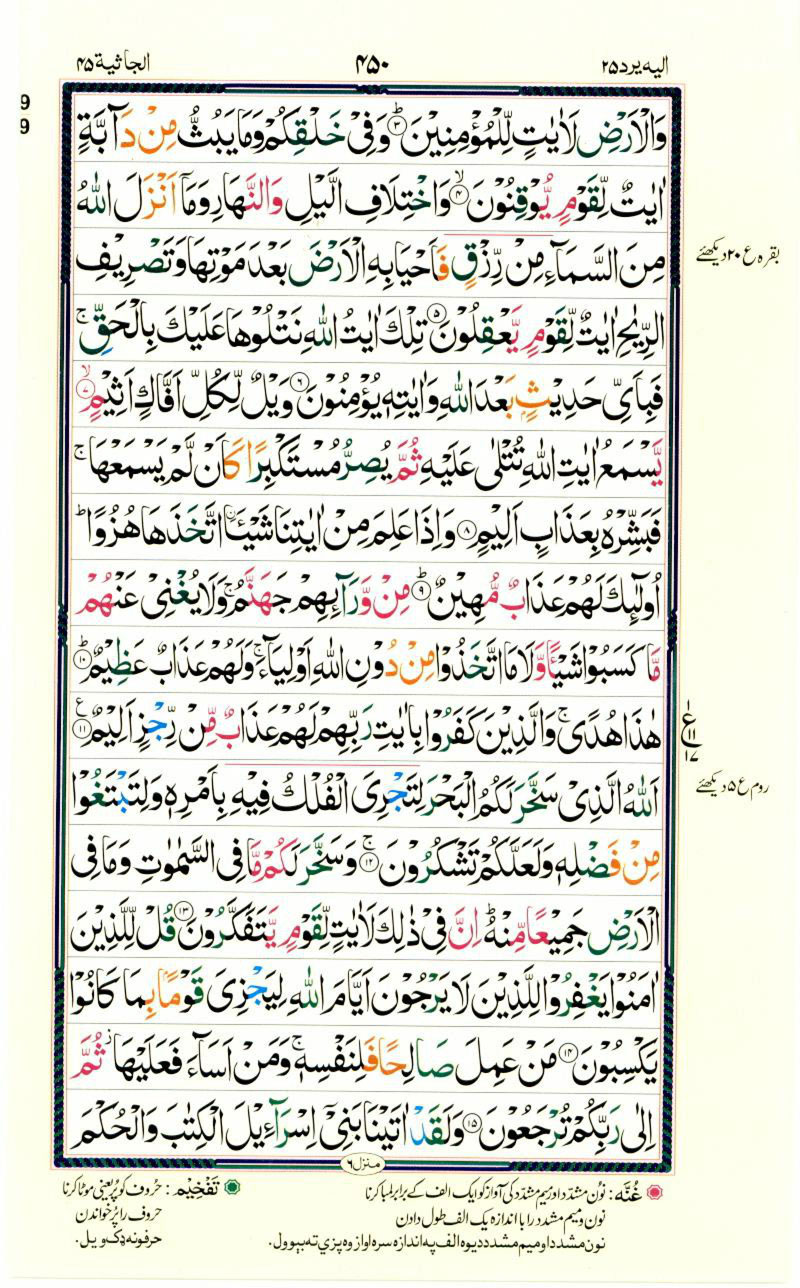 الیه یرد ۲۵
۴۵۰
الجاثیة ۴۵
9
9
وَالْاَرْضِ لَاٰیٰتٍ لِّلْمُؤْمِنِیْنَ ؕ﴿۳﴾ وَفِیْ خَلْقِكُمْ وَمَا یَبُثُّ مِنْ دَآبَّةٍ
اٰیٰتٌ لِّقَوْمٍ یُّوْقِنُوْنَ ۙ﴿۴﴾ وَاخْتِلَافِ الَّیْلِ وَالنَّهَارِ وَمَاۤ اَنْزَلَ اللّٰهُ
مِنَ السَّمَآءِ مِنْ رِّزْقٍ فَاَحْیَا بِهِ الْاَرْضَ بَعْدَ مَوْتِهَا وَتَصْرِیْفِ
بقره ع ۲۰ دیکھئے
الرِّیٰحِ اٰیٰتٌ لِّقَوْمٍ یَّعْقِلُوْنَ ﴿۵﴾ تِلْكَ اٰیٰتُ اللّٰهِ نَتْلُوْهَا عَلَیْكَ بِالْحَقِّ ۚ
فَبِاَیِّ حَدِیْثٍ بَعْدَ اللّٰهِ وَاٰیٰتِهٖ یُؤْمِنُوْنَ ﴿۶﴾ وَیْلٌ لِّكُلِّ اَفَّاكٍ اَثِیْمٍ ۙ﴿۷﴾
یَّسْمَعُ اٰیٰتِ اللّٰهِ تُتْلٰی عَلَیْهِ ثُمَّ یُصِرُّ مُسْتَكْبِرًا كَاَنْ لَّمْ یَسْمَعْهَا ۚ
فَبَشِّرْهُ بِعَذَابٍ اَلِیْمٍ ﴿۸﴾ وَاِذَا عَلِمَ مِنْ اٰیٰتِنَا شَیْـَٔا اتَّخَذَهَا هُزُوًا ؕ
اُولٰٓئِكَ لَهُمْ عَذَابٌ مُّهِیْنٌ ؕ﴿۹﴾ مِنْ وَّرَآئِهِمْ جَهَنَّمُ ۚ وَلَا یُغْنِیْ عَنْهُمْ
مَّا كَسَبُوْا شَیْـًٔا وَّلَا مَا اتَّخَذُوْا مِنْ دُوْنِ اللّٰهِ اَوْلِیَآءَ ۚ وَلَهُمْ عَذَابٌ عَظِیْمٌ ؕ﴿۱۰﴾
هٰذَا هُدًی ۚ وَالَّذِیْنَ كَفَرُوْا بِاٰیٰتِ رَبِّهِمْ لَهُمْ عَذَابٌ مِّنْ رِّجْزٍ اَلِیْمٌ ﴿۱۱﴾ ع
ع
۱۱
۱۷
اَللّٰهُ الَّذِیْ سَخَّرَ لَكُمُ الْبَحْرَ لِتَجْرِیَ الْفُلْكُ فِیْهِ بِاَمْرِهٖ وَلِتَبْتَغُوْا
روم ع ۵ دیکھئے
مِنْ فَضْلِهٖ وَلَعَلَّكُمْ تَشْكُرُوْنَ ۚ﴿۱۲﴾ وَسَخَّرَ لَكُمْ مَّا فِی السَّمٰوٰتِ وَمَا فِی
الْاَرْضِ جَمِیْعًا مِّنْهُ ؕ اِنَّ فِیْ ذٰلِكَ لَاٰیٰتٍ لِّقَوْمٍ یَّتَفَكَّرُوْنَ ﴿۱۳﴾ قُلْ لِّلَّذِیْنَ
اٰمَنُوْا یَغْفِرُوْا لِلَّذِیْنَ لَا یَرْجُوْنَ اَیَّامَ اللّٰهِ لِیَجْزِیَ قَوْمًۢا بِمَا كَانُوْا
یَكْسِبُوْنَ ﴿۱۴﴾ مَنْ عَمِلَ صَالِحًا فَلِنَفْسِهٖ ۚ وَمَنْ اَسَآءَ فَعَلَیْهَا ؗ ثُمَّ
اِلٰی رَبِّكُمْ تُرْجَعُوْنَ ﴿۱۵﴾ وَلَقَدْ اٰتَیْنَا بَنِیْۤ اِسْرَآءِیْلَ الْكِتٰبَ وَالْحُكْمَ
منزل ۶
غُنَّه: نون مشدد اور میم مشدد کی آواز کو ایک الف کے برابر لمبا کرنا
نون و میم مشدد را با اندازه یک الف طول دادن
نون مشدد او میم مشدد دیوه الف په اندازه سره اواز وه پزې ته بېوول.
تَفْخِیْم: حروف کو پُر یعنی موٹا کرنا
حروف را پُر خواندن
حرفونه ډک ویل.